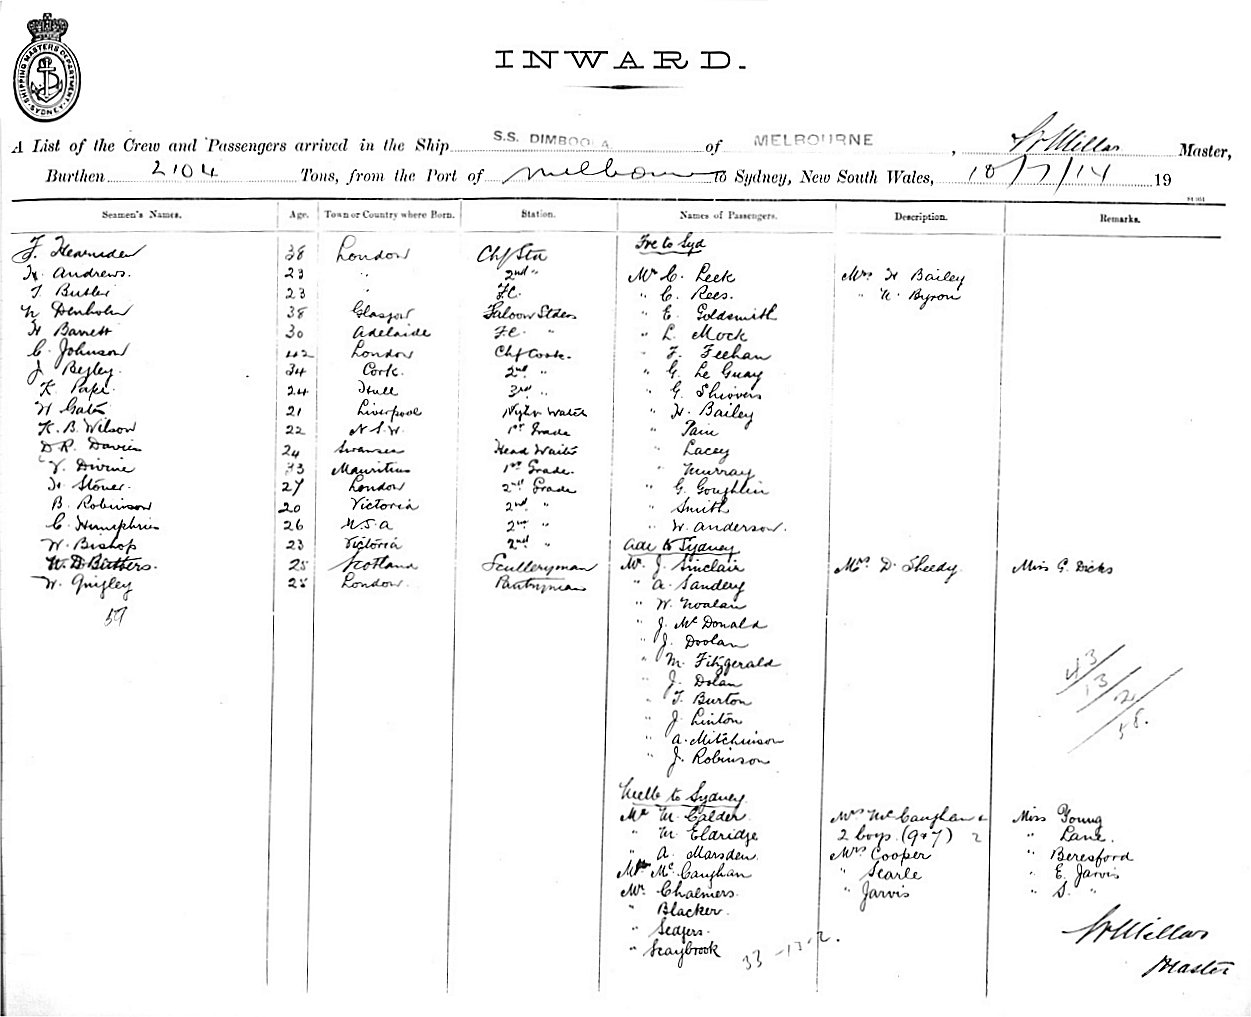 SHIPPING MASTERS DEPARTMENT SYDNEY
INWARD.
A List of the Crew and Passengers arrived in the Ship S.S. DIMBOOLA of MELBOURNE, Millar Master,
Burthen 2104 Tons, from the Port of Melbourne to Sydney, New South Wales, 10/7/14 19
Seamen's Names. Age. Town or Country where Born. Station. Names of Passengers. Description. Remarks.
Fre to Syd
38 London Chf Std
H. Andrews. 23 " 2nd " Mr C. Leek Mrs H Bailey
T Butler 23 " F.C. " C. Rees. " N. Byron
N Denholm 38 Glasgow Saloon Stders " E. Goldsmith
H Barrett 30 Adelaide F.C. " " L. Mock
C. Johnson 42 London Chf Cook. " F. Feehan
J Begley. 34 Cork. 2nd " " G. Le Guay
K. Pape. 24 Hull 3rd " " G. Shivers
21 Liverpool Night Watch " H. Bailey
K. B. Wilson 22 N.S.W. 1st Grade " Pain
D R. Davies 24 Swansea Head Waiter " Lacey
V. Divine 33 Mauritius 1st Grade. " Murray
H. Stoner. 27 London 2nd Grade " G. Goughlin
B. Robinson 20 Victoria 2nd " " Smith
C. Humphries 26 U.S.A 2nd " " W. Anderson.
W. Bishop 23 Victoria 2nd " Ade to Sydney
W. D. Buthers. 25 Scotland Sculleryman Mr. J. Sinclair Mrs D. Sheedy. Miss G. Dicks
W. Quigley 28 London. Pantryman " A. Sandery
59
" W. Noalan
" J. McDonald
" J. Doolan
" M. Fitzgerald
" J. Dolan
" T. Burton
" J. Linton
" A. Mitchinson
" J. Robinson
43/13/2/58.
Melb to Sydney.
Mr M. Calder. Mrs McCaughan & Miss Young
" M Eldridge 2 boys. (9&7) 2 " Lane.
" A. Marsden. Mrs Cooper " Beresford
Mr McCaughan " Searle " E. Jarvis
Mr. Chalmers. " Jarvis " S. "
" Blacker.
" Sedgers.
" Seaybrook 33 - 13 - 2.
Millar
Master